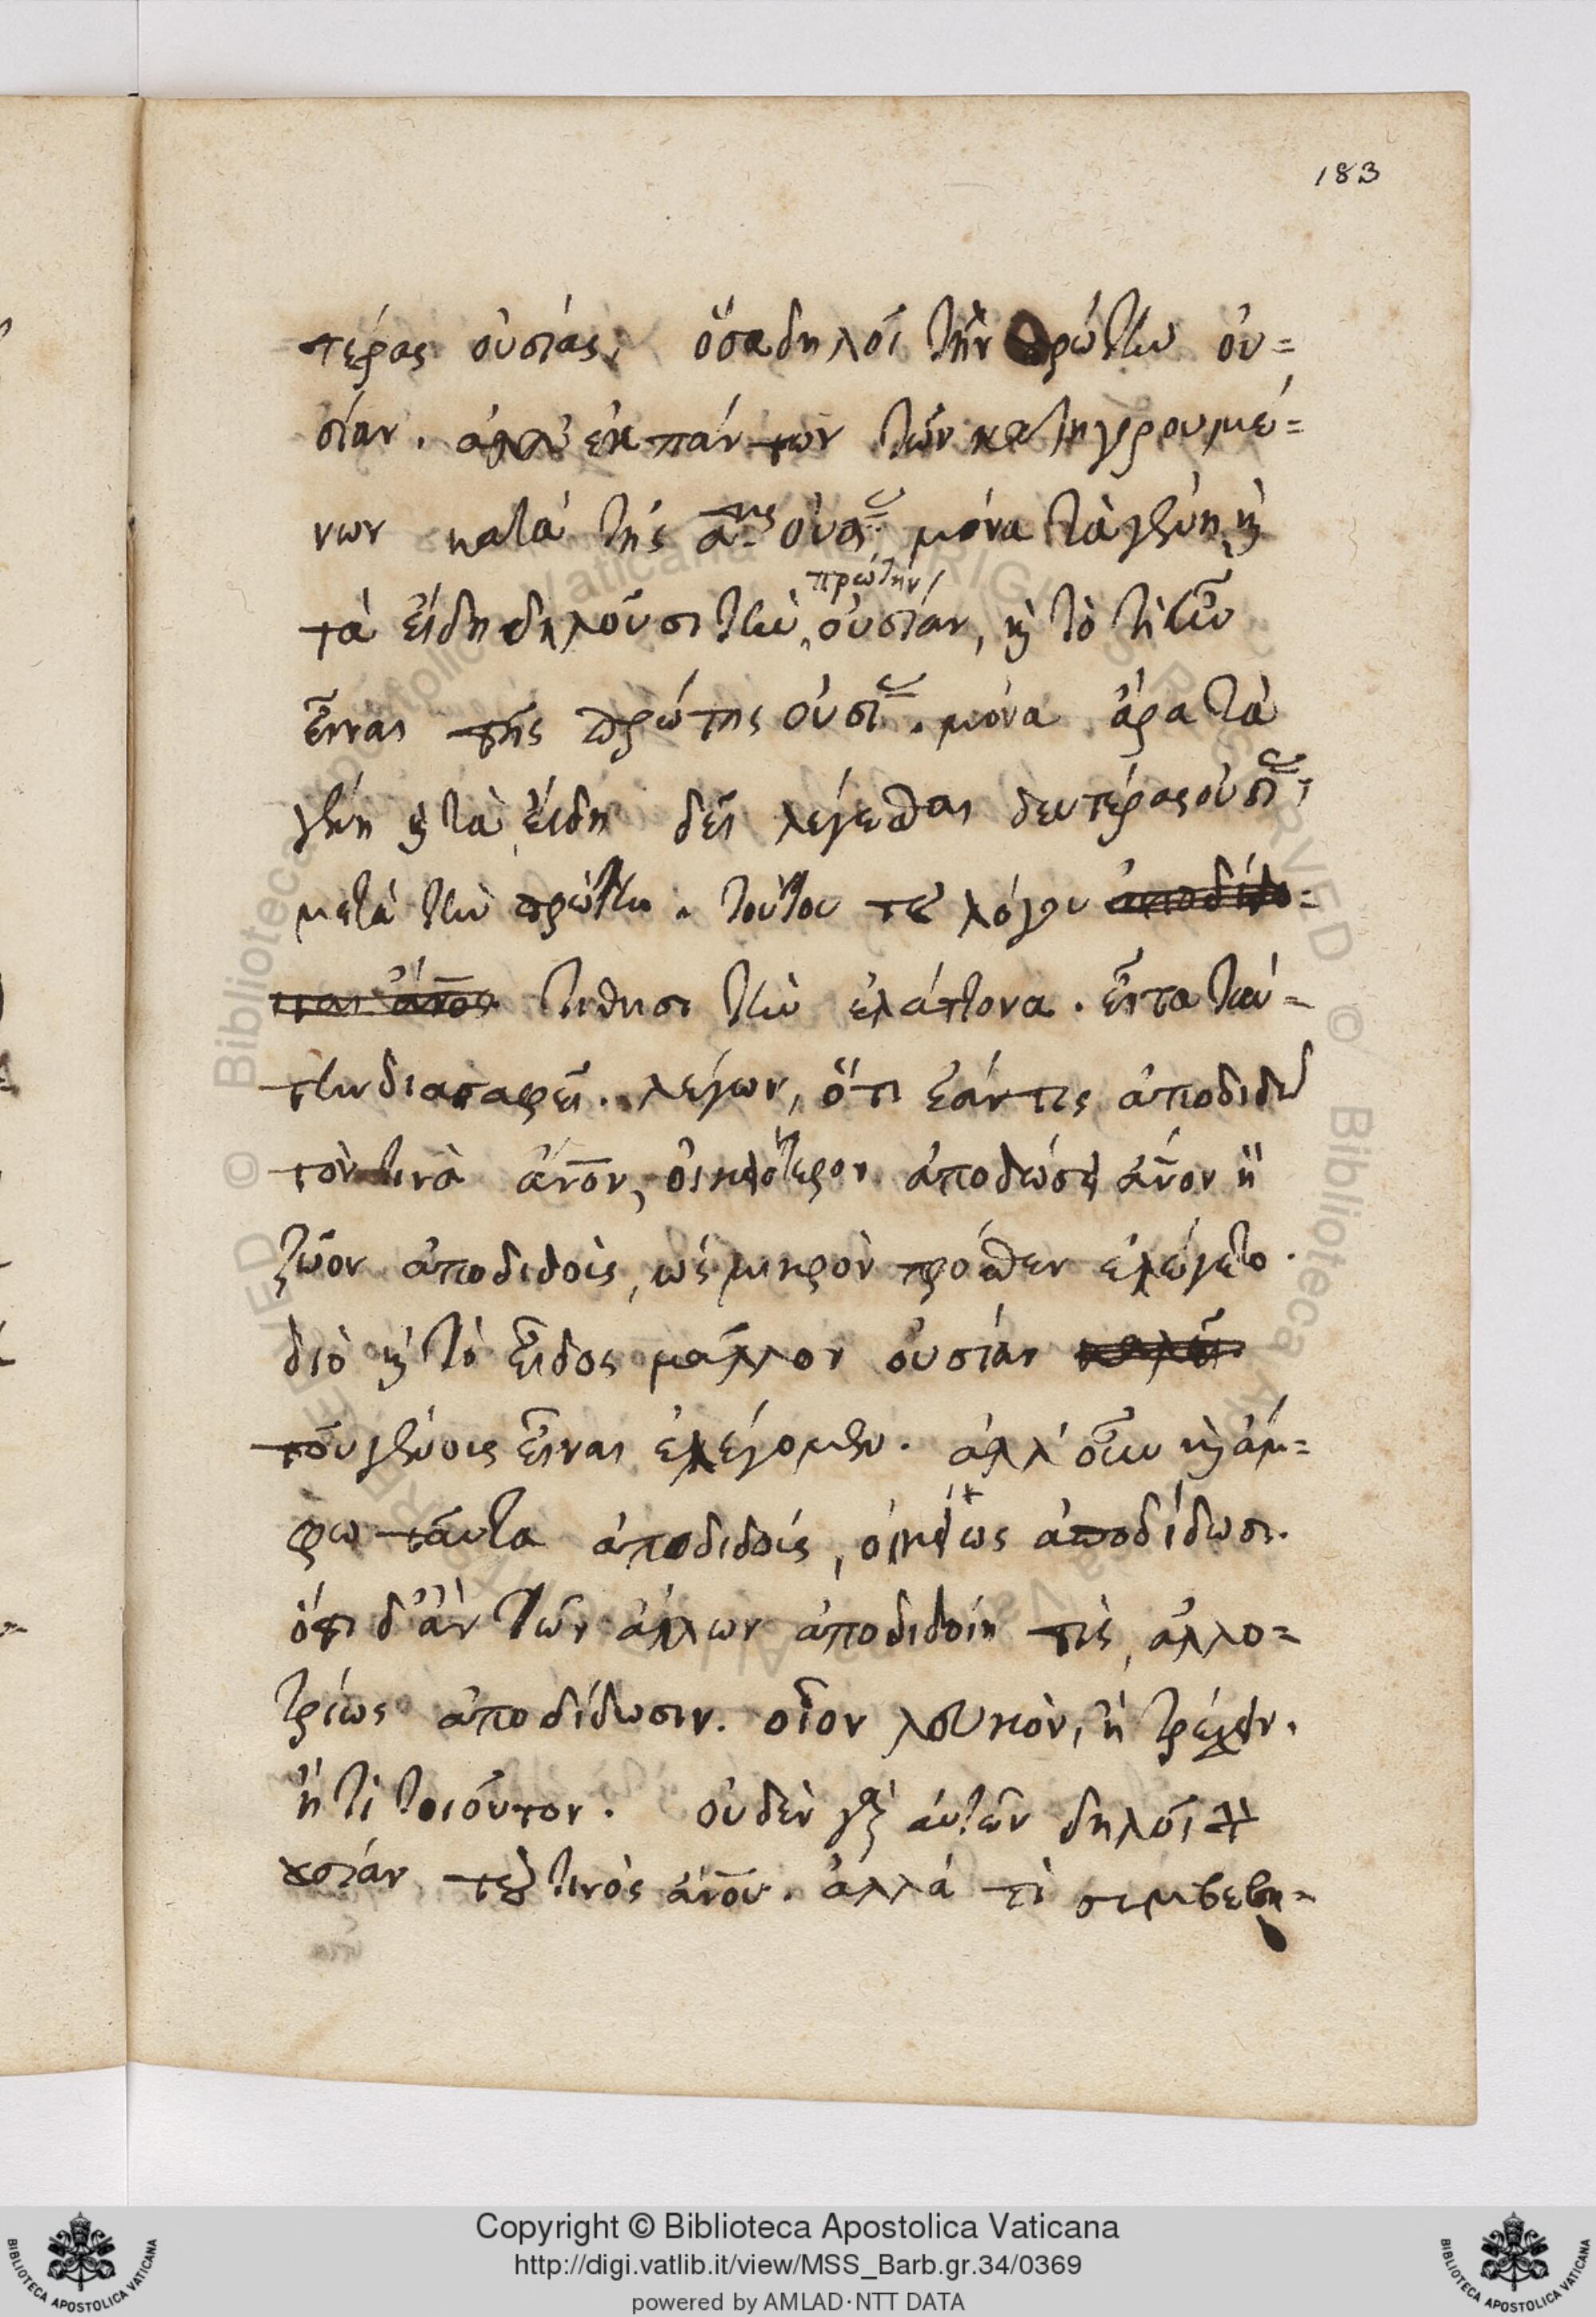 183
τέρας οὐσίας, ὅσα δηλοῖ τὴν πρώτην οὐ=
σίαν. ἀλλ' ἐκ πάντων τῶν κατηγορουμέ=
νων κατὰ τῆς αης οὐσίας μόνα τὰ γένη καὶ
πρώτην/
τὰ εἴδη δηλοῦσι τὴν οὐσίαν, καὶ τὸ τί ἦν
εἶναι τῆς πρώτης οὐσίας. μόνα ἄρα τὰ
γένη καὶ τὰ εἴδη δεῖ λέγεσθαι δευτέρας οὐσίας
μετὰ τὴν πρώτην. τούτου τοῦ λόγου ἀποδίδο=
ται ἄνος τίθησι τὴν ἐλάττονα. εἶτα ταύ=
την διασαφεῖ. λέγων, ὅτι ἐάν τις ἀποδιδῶ
τὸν τινὰ ἄνον, οἰκειότερον ἀποδώσει ἄνον ἢ
ζῶον ἀποδιδοὺς, ὡς μικρὸν πρόσθεν ἐλέγετο.
διὸ καὶ τὸ εἶδος μᾶλλον οὐσίαν καλεῖ
τοῦ γένους εἶναι ἐλέγομεν. ἀλλ' οὖν καὶ ἄμ=
φω ταῦτα ἀποδιδοὺς, οἰκείως ἀποδίδωσι.
ὅτι δ' ἂν τῶν ἄλλων ἀποδιδοίη τὶς, ἀλλο=
τρίως ἀποδίδωσιν. οἷον λευκὸν, ἢ τρέχειν.
ἢ τὶ τοιοῦτον. οὐδὲν γὰρ αὐτῶν δηλοῖ τὴν
οὐσίαν τοῦ τινὸς ἄνου. ἀλλὰ τὶ συμβεβη=
Copyright © Biblioteca Apostolica Vaticana
http://digi.vatlib.it/view/MSS_Barb.gr.34/0369
powered by AMLAD·NTT DATA